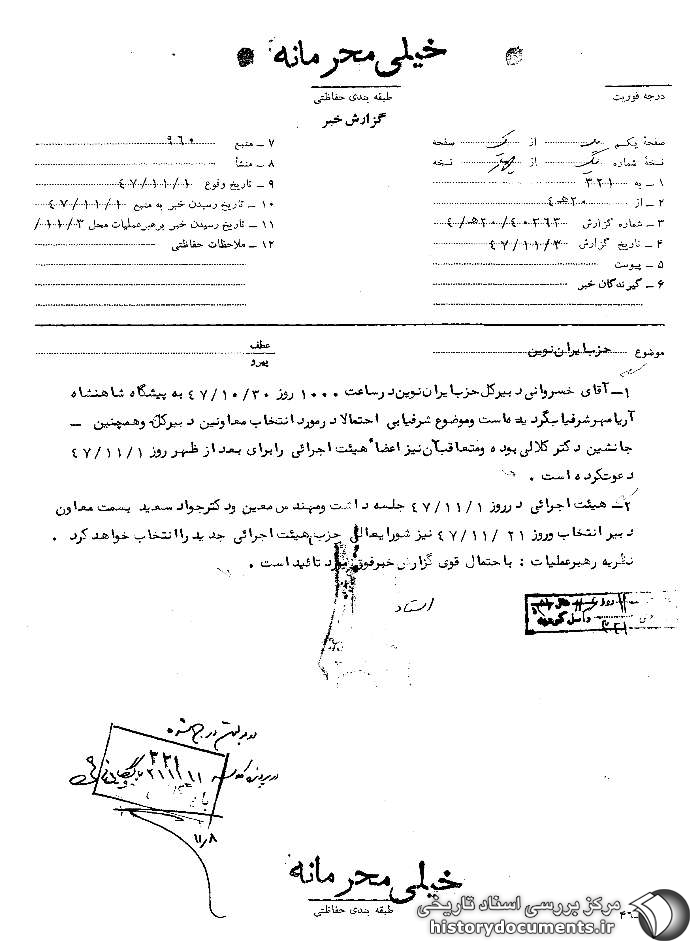 خیلی محرمانه
طبقه بندی حفاظتی
درجه فوریت
گزارش خبر
صفحهٔ یکم یک از یک صفحه
نسخهٔ شماره یک از چهار نسخه
۱ ـ به ۳۲۱
۲ ـ از ۲۰هـ۴
۳ ـ شماره گزارش ۴۰۲۶۳/۲۰هـ۴
۴ ـ تاریخ گزارش ۴۷/۱۱/۳
۵ ـ پیوست
۶ ـ گیرندگان خبر
۷ ـ منبع ۹۶۰
۸ ـ منشأ
۹ ـ تاریخ وقوع ۴۷/۱۱/۱
۱۰ ـ تاریخ رسیدن خبر به منبع ۴۷/۱۱/۱
۱۱ ـ تاریخ رسیدن خبر برهبرعملیات محل ۱۱/۳/
۱۲ ـ ملاحظات حفاظتی
موضوع حزب ایران نوین
عطف
پیرو
۱ـ آقای خسروانی دبیرکل حزب ایران نوین در ساعت ۱۰۰۰ روز ۴۷/۱۰/۳۰ به پیشگاه شاهنشاه
آریامهر شرفیاب گردیده است و موضوع شرفیابی احتمالا در مورد انتخاب معاونین دبیرکل و همچنین ـ
جانشین دکتر کلالی بوده و متعاقب آن نیز اعضاء هیئت اجرائی را برای بعد از ظهر روز ۴۷/۱۱/۱
دعوت کرده است .
۲ـ هیئت اجرائی در روز ۴۷/۱۱/۱ جلسه داشت و مهندس معین و دکتر جواد سعید بسمت معاون
دبیر انتخاب و روز ۲۱ /۴۷/۱۱ نیز شورایعالی حزب هیئت اجرائی جدید را انتخاب خواهد کرد .
نظریه رهبرعملیات : با احتمال قوی گزارش خبر فوق مورد تائید است .
استاد
در پرونده
۳۲۱
۱۱/۸
خیلی محرمانه
طبقه بندی حفاظتی
مرکز بررسی اسناد تاریخی
historydocuments.ir